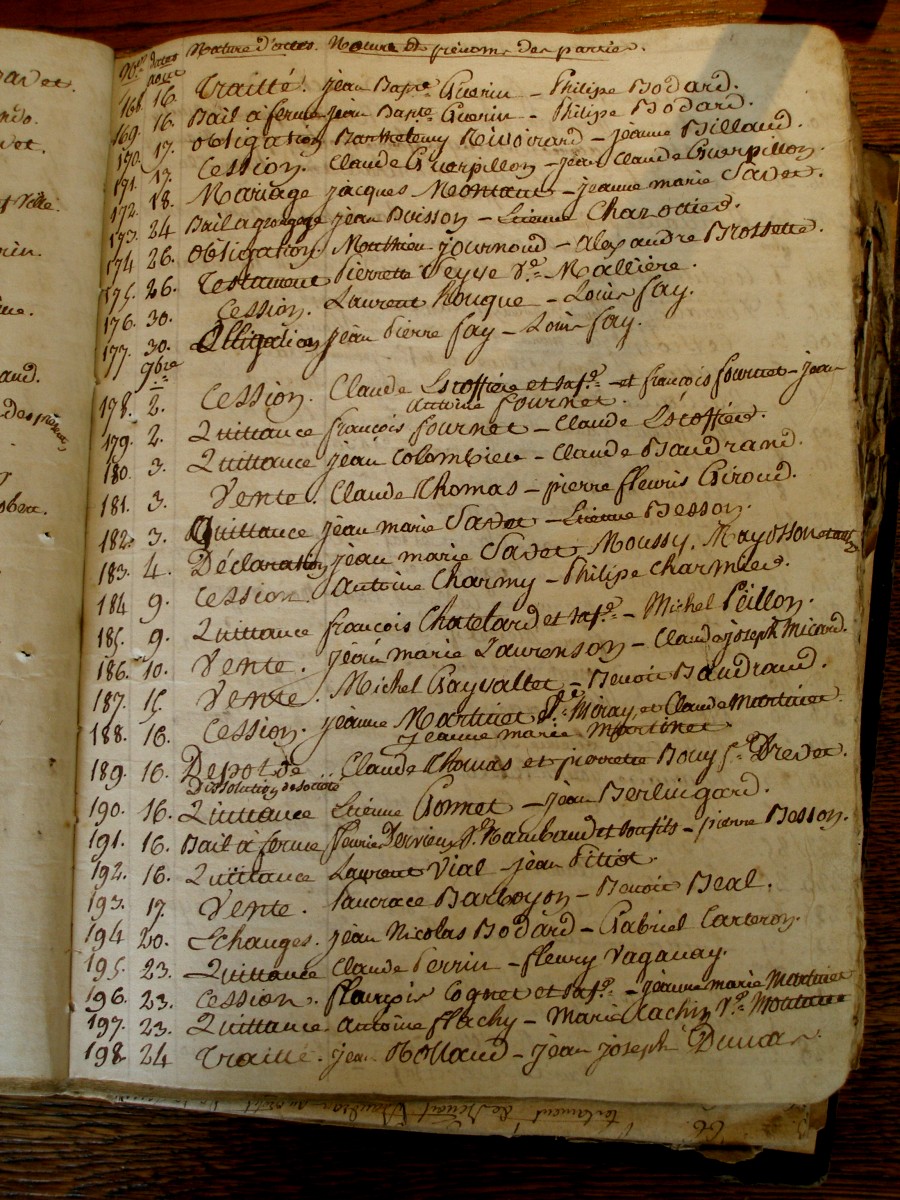 avet.
ville.
and.
N.os dates pour Nature d'actes. Noms et prénoms des parties.
168. 16. Traitté. jean Bapte Guerin - Philipe Bodard.
169. 16. Bail à ferme jean Bapte Guerin - Philipe Bodard.
170. 17. Obligation Barthelemy Rivoirard - jeanne Billaud.
171. 17. Cession. Claude Guerpillon - jean Claude Guerpillon.
172. 18. Mariage jacques Montaut - jeanne marie Savet.
173. 24 Bail a grangeage jean Buisson - Etienne
174 26. Obligation. Matthieu journoud - Alexandre Brossette.
175. 26. Testament Pierrette Veyre Ve Mallière.
176. 30. Cession. Laurent Rouque - Louis fay.
177. 30. Obligation jean Pierre fay - Louis fay.
9bre
178. 2. Cession. Claude Escoffier et sa fe - et françois fournet - jean
Antoine fournet.
179. 2. Quittance françois fournet - Claude Escoffier.
180. 3. Quittance jean Colombier - Claude Baudrand.
181. 3. Vente. Claude Thomas - pierre fleuris Giroud.
182. 3. Quittance jean marie Savet - Etienne Besson.
183. 4. Déclaration jean marie Savet, Moussy, Mayosson
184 9. Cession. Antoine Charmy - Philipe
185. 9. Quittance françois Chatelard et sa fe - Michel Peillon.
186. 10. Vente. jean marie Laurenson - Claude joseph Micard.
187. 15. Vente. Michel Gayvallet - Benoit Baudrand.
188. 16. Cession. jeanne Martinet Ve Miray, et Claude Martinet
jeanne marie Martinet
189. 16. Depot de Claude Thomas et pierrette Bouy Ve Drevet.
Dissolution de société
190. 16. Quittance Etienne Gonnet - jean Berlingard.
191. 16. Bail à ferme fleurie Dervieux Ve Rambaud et son fils - pierre Besson.
192. 16. Quittance Laurent Vial - jean Pitiot.
193. 17. Vente. Pancrace Barboyon - Benoit Beal.
194 20. Echanges. jean Nicolas Bodard - Gabriel Carteron.
195. 23. Quittance Claude Perrin - fleury Vaganay.
196. 23. Cession. françois Cognet et sa fe - jeanne marie Martinet
197. 23. Quittance Antoine flachy - Marie Ve
198. 24 Traitté. jean Rolland - jean joseph